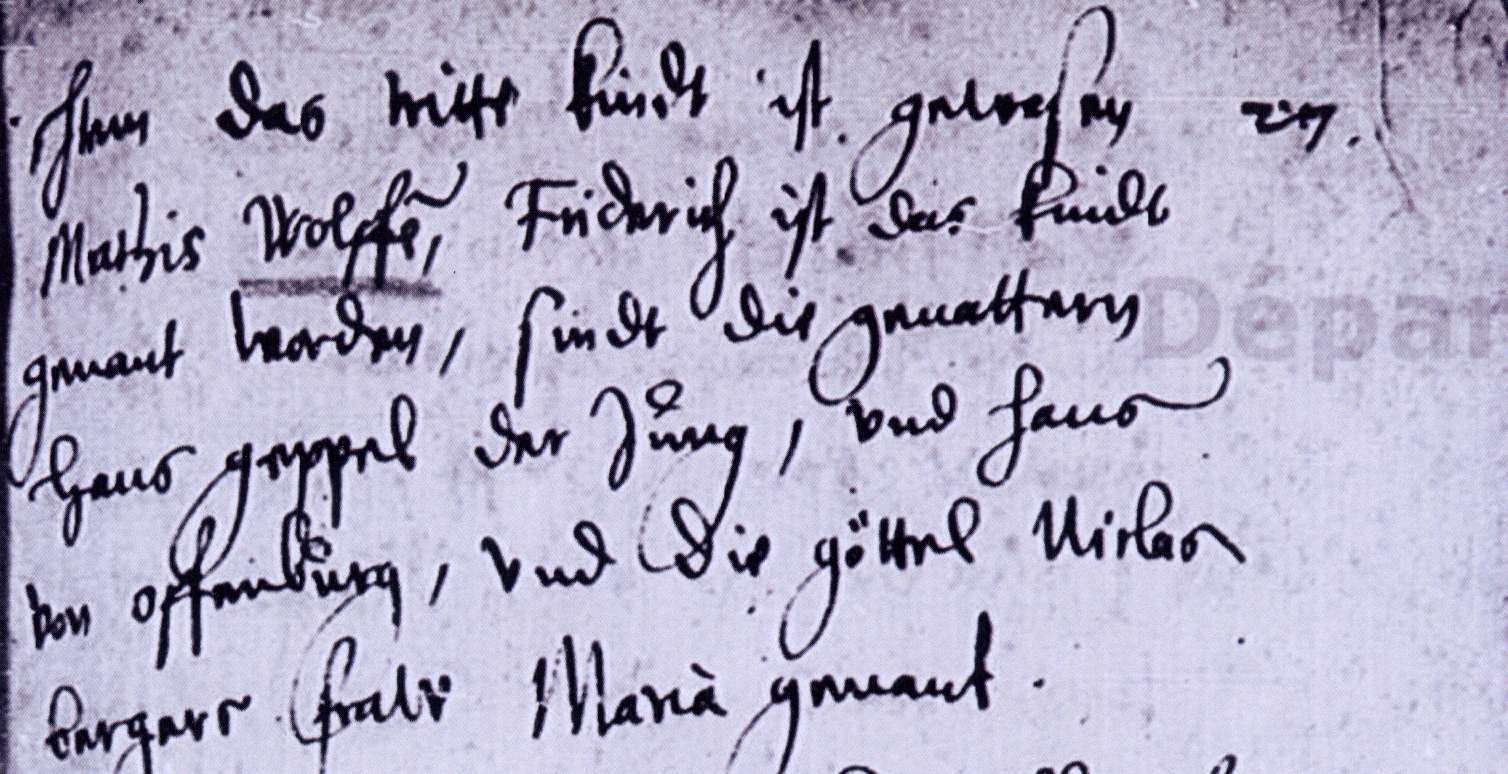 Ihnn das dritte kindt ist gewesen
Mathis Wolffē, Friderich ist das kindt
genant worden, sindt die gevattern
Hans geppel der Jůng, vnd Hans
von offenbůrg, vnd die göttel Niclas
bergers fraw Maria genant.
Dépar